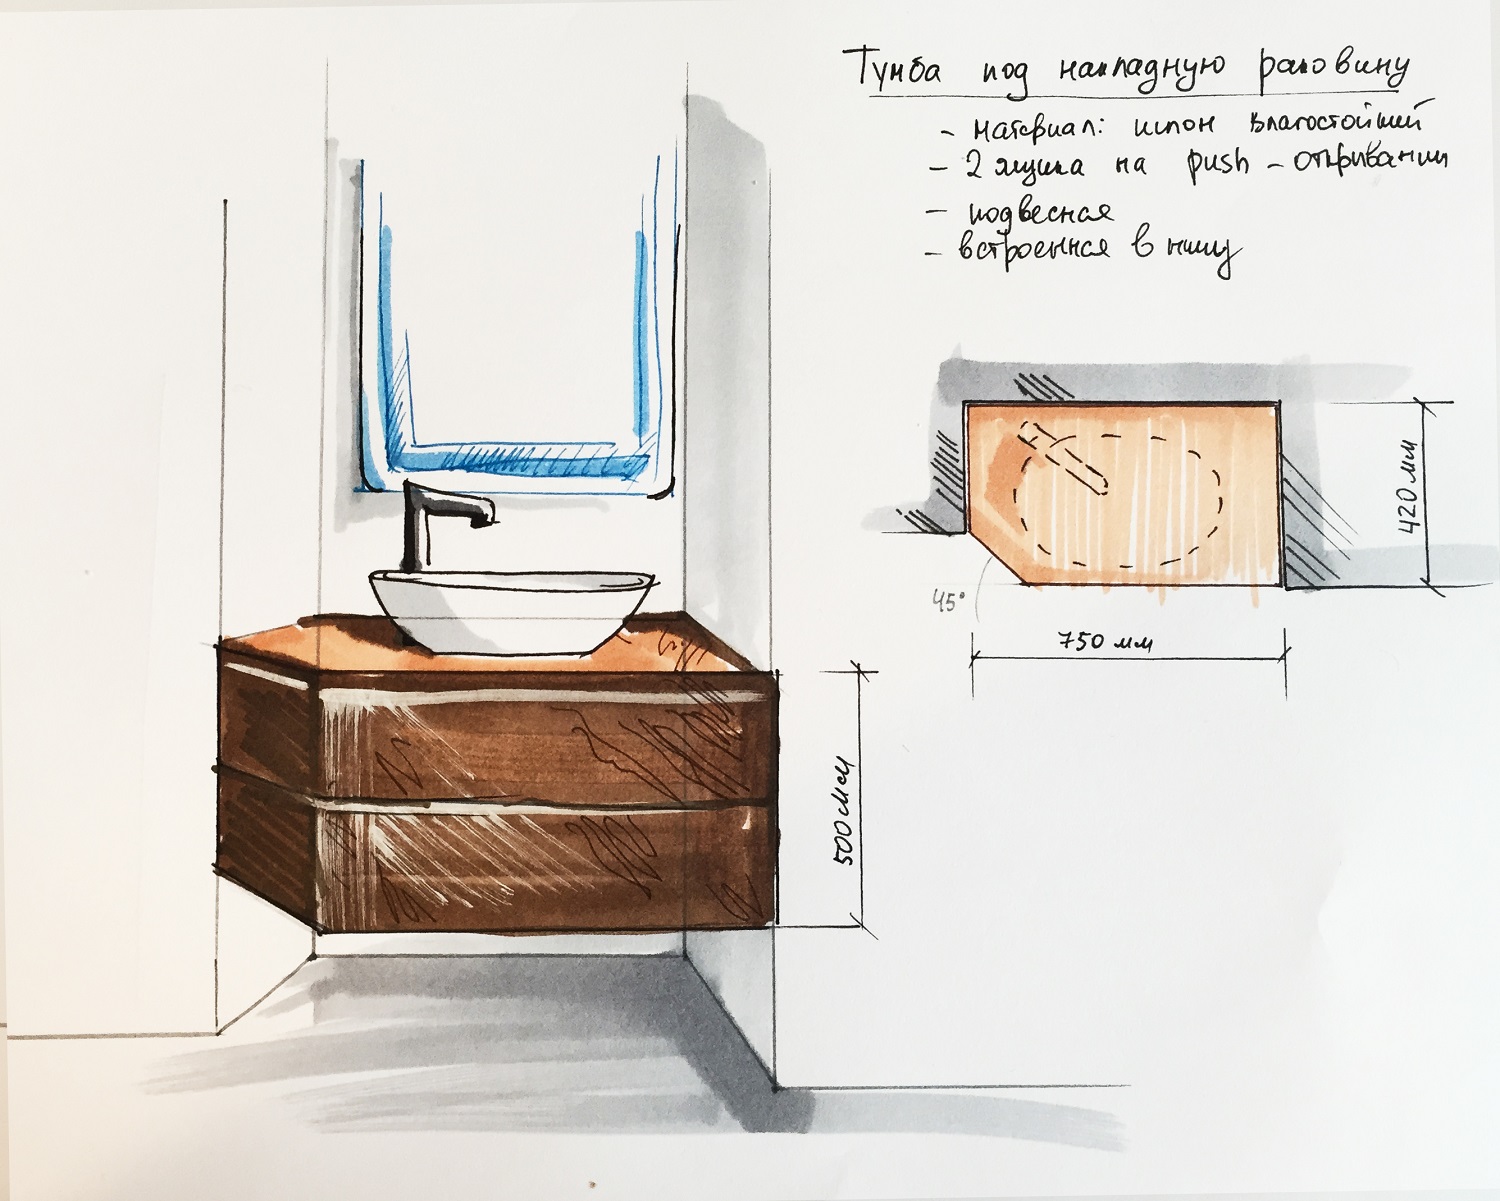 Тумба под накладную раковину
- материал: шпон влагостойкий
- 2 ящика на push-открывании
- подвесная
- встроенная в нишу
420 мм
45°
750 мм
500 мм